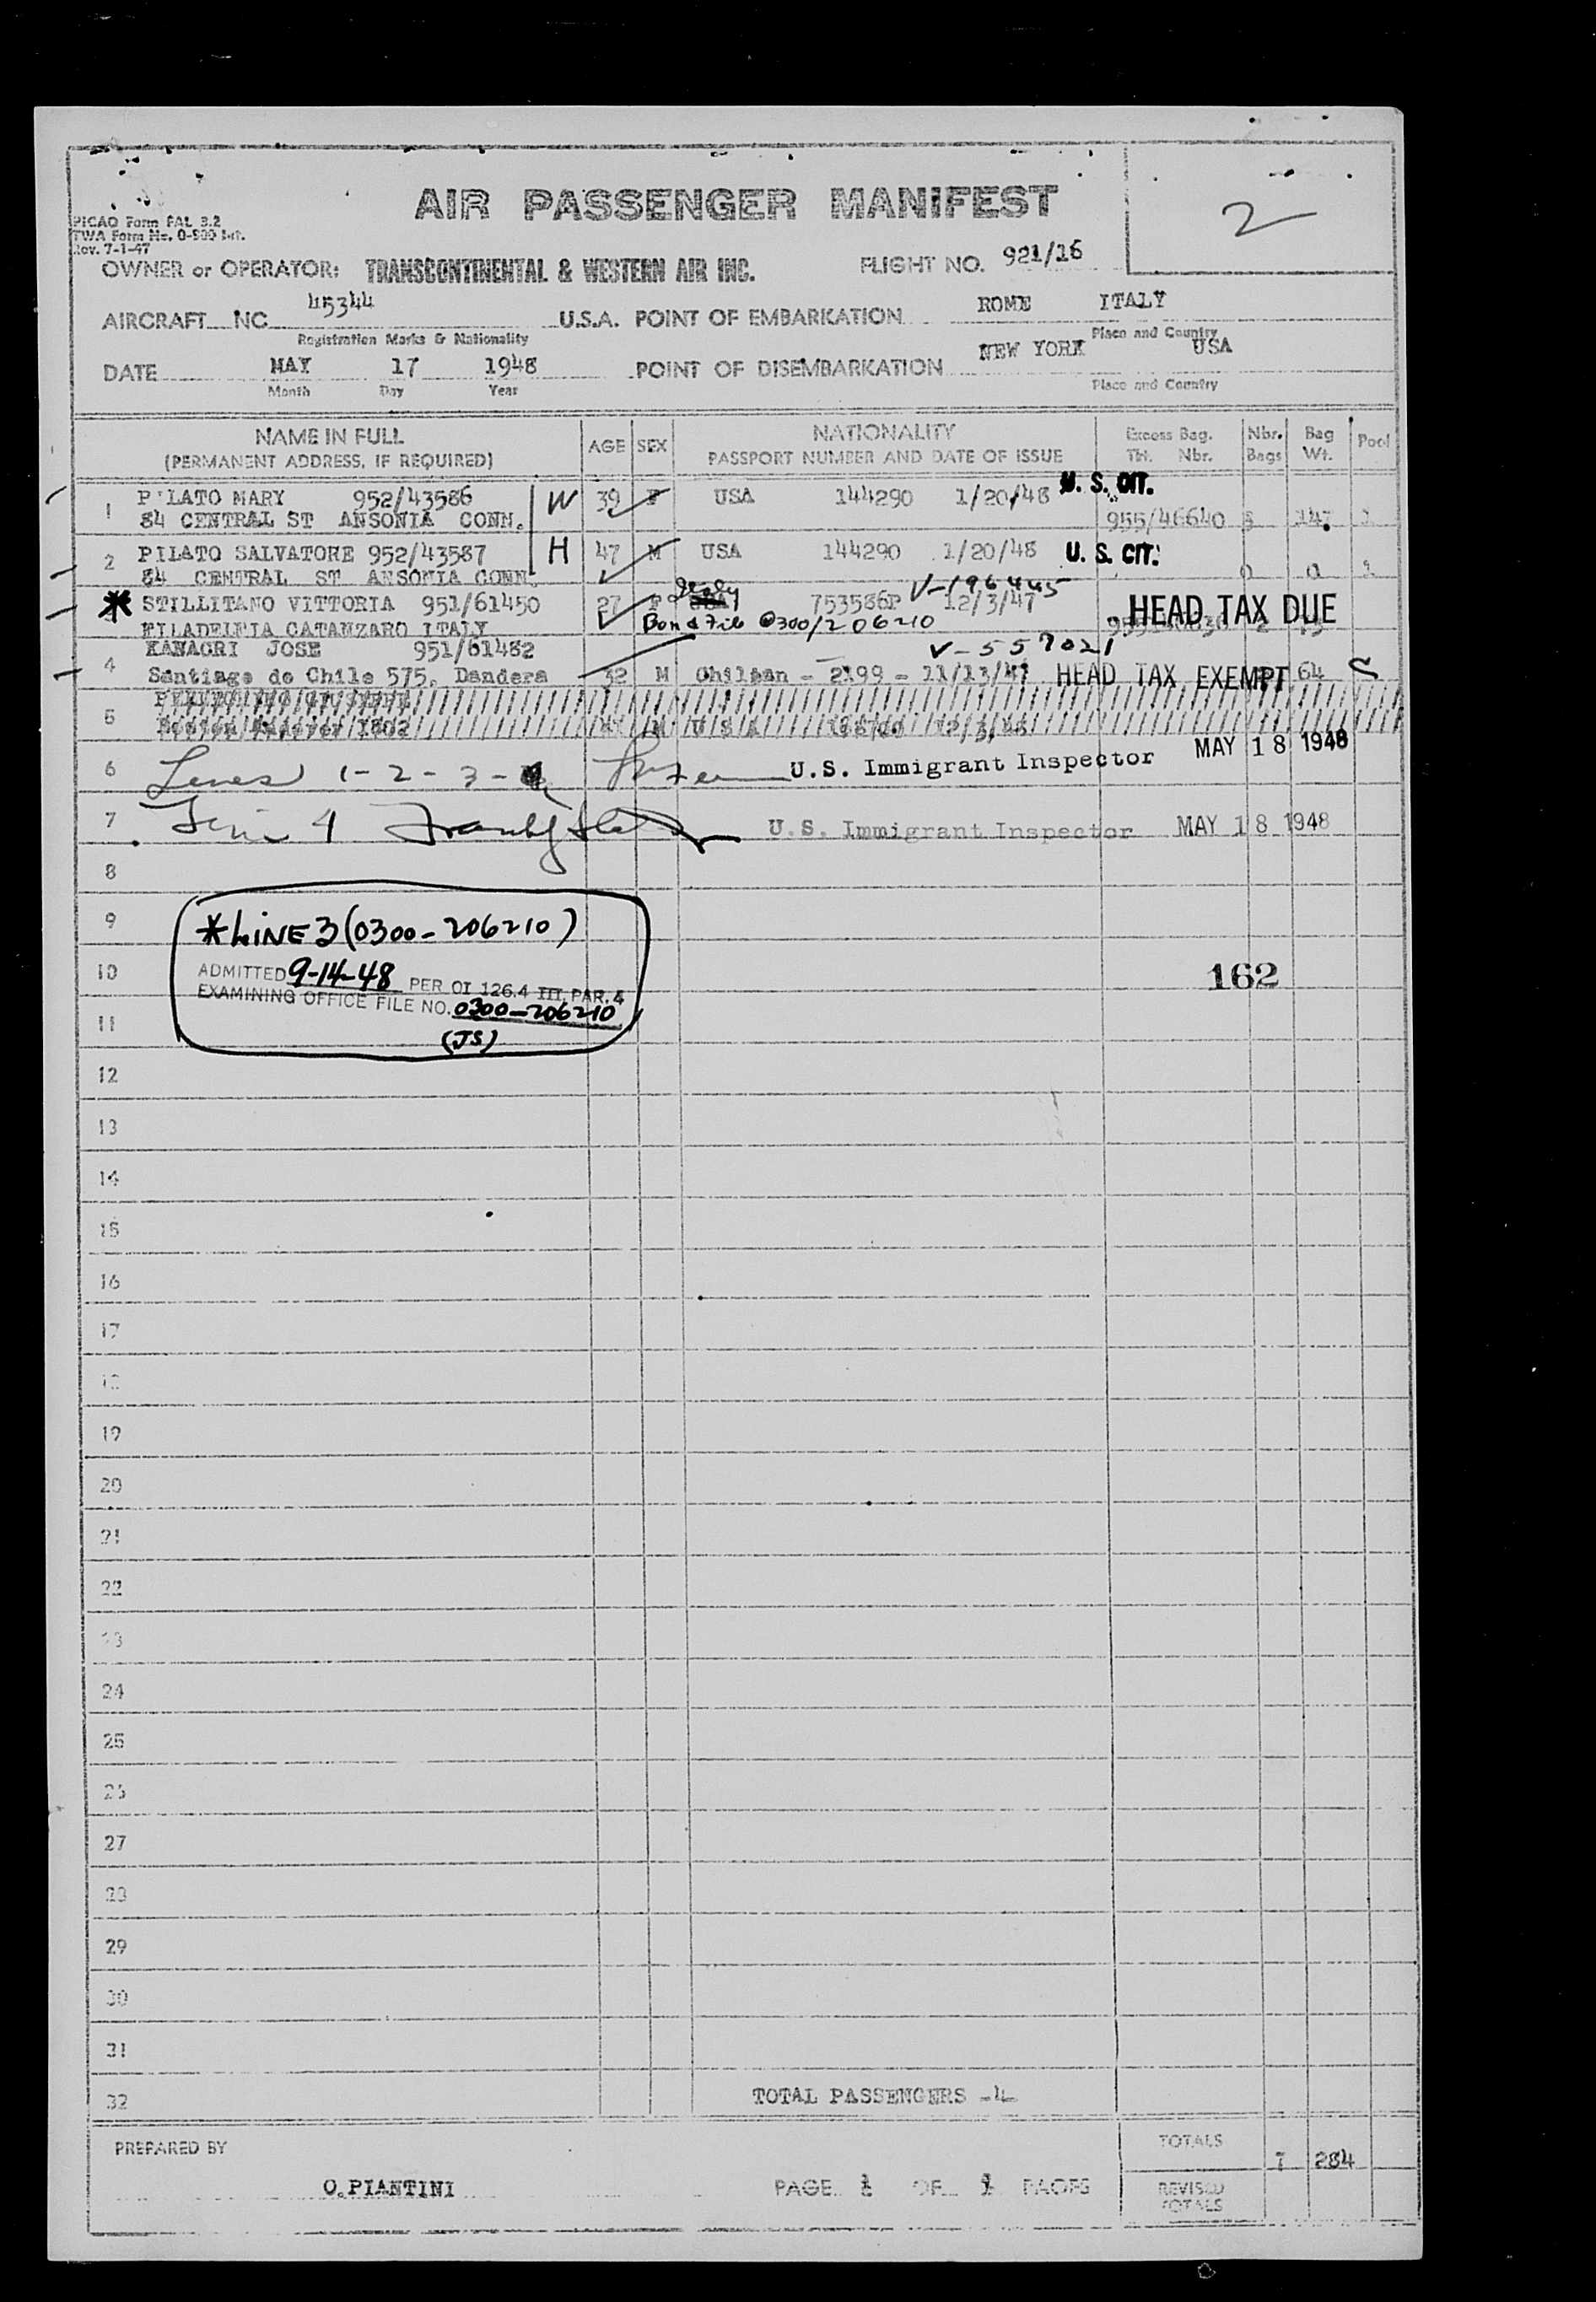 AIR PASSENGER MANIFEST
2
PICAO Form FAL 3.2
TWA Form No. 0-800 Int.
Rev. 7-1-47
OWNER or OPERATOR: TRANSCONTINENTAL & WESTERN AIR INC. FLIGHT NO. 921/16
AIRCRAFT NC 45344 U.S.A. POINT OF EMBARKATION ROME ITALY
Registration Marks & Nationality Place and Country
DATE MAY 17 1948 POINT OF DISEMBARKATION NEW YORK USA
Month Day Year Place and Country
NAME IN FULL AGE SEX NATIONALITY Excess Bag. Nbr. Bag Pool
(PERMANENT ADDRESS, IF REQUIRED) PASSPORT NUMBER AND DATE OF ISSUE Tkt. Nbr. Bags Wt.
1 PILATO MARY 952/43586 W 39 F USA 144290 1/20/48 U. S. CIT.
84 CENTRAL ST ANSONIA CONN. 955/46640 147
2 PILATO SALVATORE 952/43587 H 47 M USA 144290 1/20/48 U. S. CIT.
84 CENTRAL ST ANSONIA CONN.
V-196445
* 3 STILLITANO VITTORIA 951/61450 27 F Italy 753586P 12/3/47 HEAD TAX DUE
FILADELFIA CATANZARO ITALY Bond File 0300/206210
V-557021
4 KANACRI JOSE 951/61482
Santiago de Chile 575, Dandera 32 M Chilean - 2199 - 11/13/47 HEAD TAX EXEMPT 64
5
6 Lines 1-2-3- U.S. Immigrant Inspector MAY 18 1948
7 Line 4 U.S. Immigrant Inspector MAY 18 1948
8
9 *LINE 3 (0300-206210)
10 ADMITTED 9-14-48 PER OI 126.4 III, PAR. 4 162
EXAMINING OFFICE FILE NO. 0300-206210
11 (JS)
12
13
14
15
16
17
18
19
20
21
22
23
24
25
26
27
28
29
30
31
32 TOTAL PASSENGERS -4-
PREPARED BY TOTALS 7 284
O.PIANTINI PAGE 1 OF 1 PAGES REVISED
TOTALS